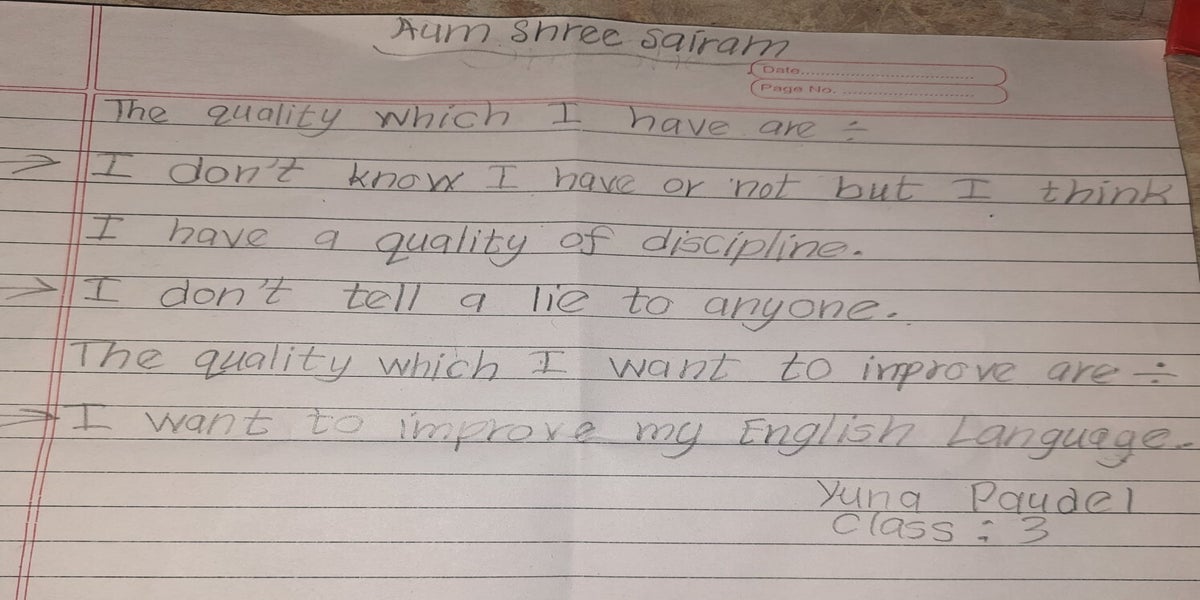 Aum Shree Sairam
Date
Page No.
The quality which I have are ÷
→ I don't know I have or not but I think
I have a quality of discipline.
→ I don't tell a lie to anyone.
The quality which I want to improve are ÷
→ I want to improve my English Language.
Yuna Paudel
Class : 3